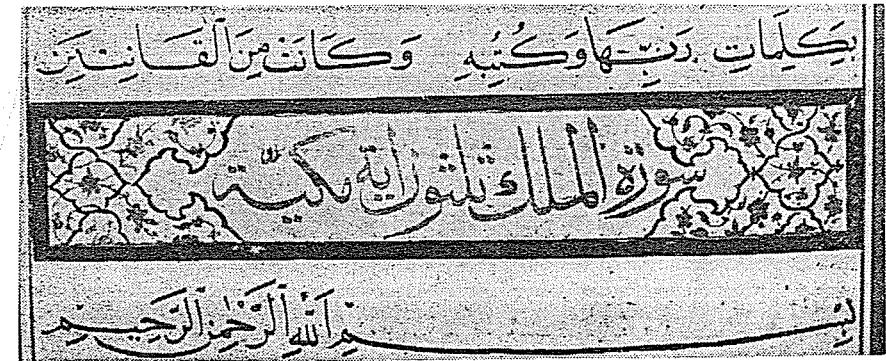 بِكَلِمَاتِ رَبِّهَا وَكُتُبِهِ وَكَانَتْ مِنَ ٱلْقَانِتِينَ
سورة الملك ثلثون آية مكية
بِسْمِ ٱللَّهِ ٱلرَّحْمٰنِ ٱلرَّحِيمِ